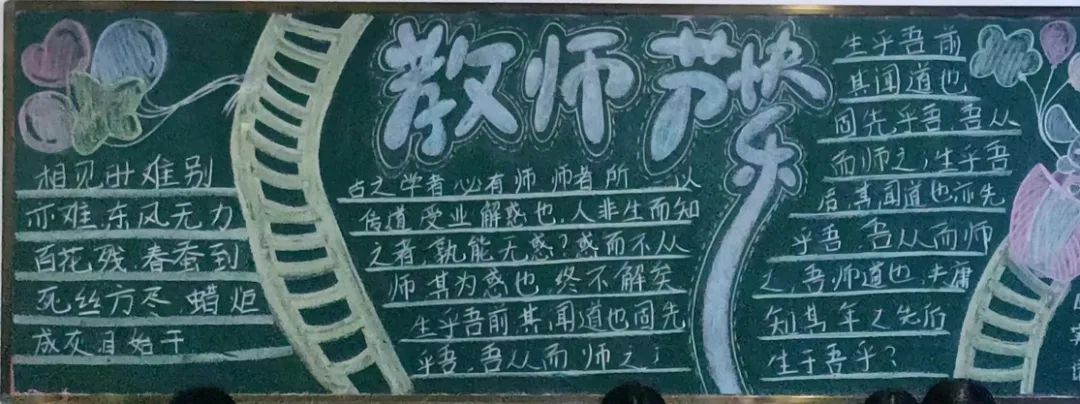 教师节快乐
相见时难别
亦难东风无力
百花残.春蚕到
死丝方尽 蜡炬
成灰泪始干
古之学者必有师 师者所 以
传道受业解惑也.人非生而知
之者.孰能无惑?惑而不从
师 其为惑也 终不解矣
生乎吾前.其闻道也固先
乎吾.吾从而师之;
生乎吾前
其闻道也
固先乎吾 吾从
而师之;生乎吾
后.其闻道也亦先
乎吾.吾从而师
之,吾师道也.夫庸
知其年之先后
生于吾乎?